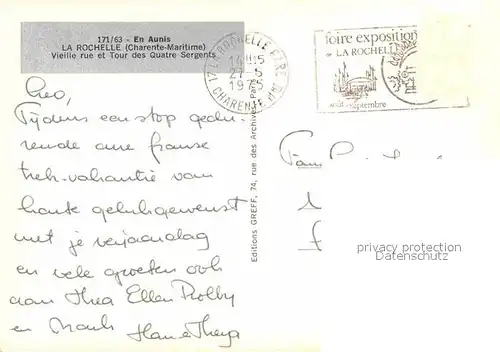 171/63 - En Aunis
LA ROCHELLE (Charente-Maritime)
Vieille rue et Tour des Quatre Sergents
17 LA ROCHELLE
14H15
27-5
19
CHARENTE MME
foire exposition
de LA ROCHELLE
août-septembre
Editions GREFF, 74, rue des Archives - Paris
Leo,
Tijdens een stop gedu-
rende onze franse
trek-vakantie van
harte gelukgewenst
met je verjaardag
en vele groeten ook
aan Thea Ellen Robby
en Mark Han & Thea
Fam
privacy protection
Datenschutz